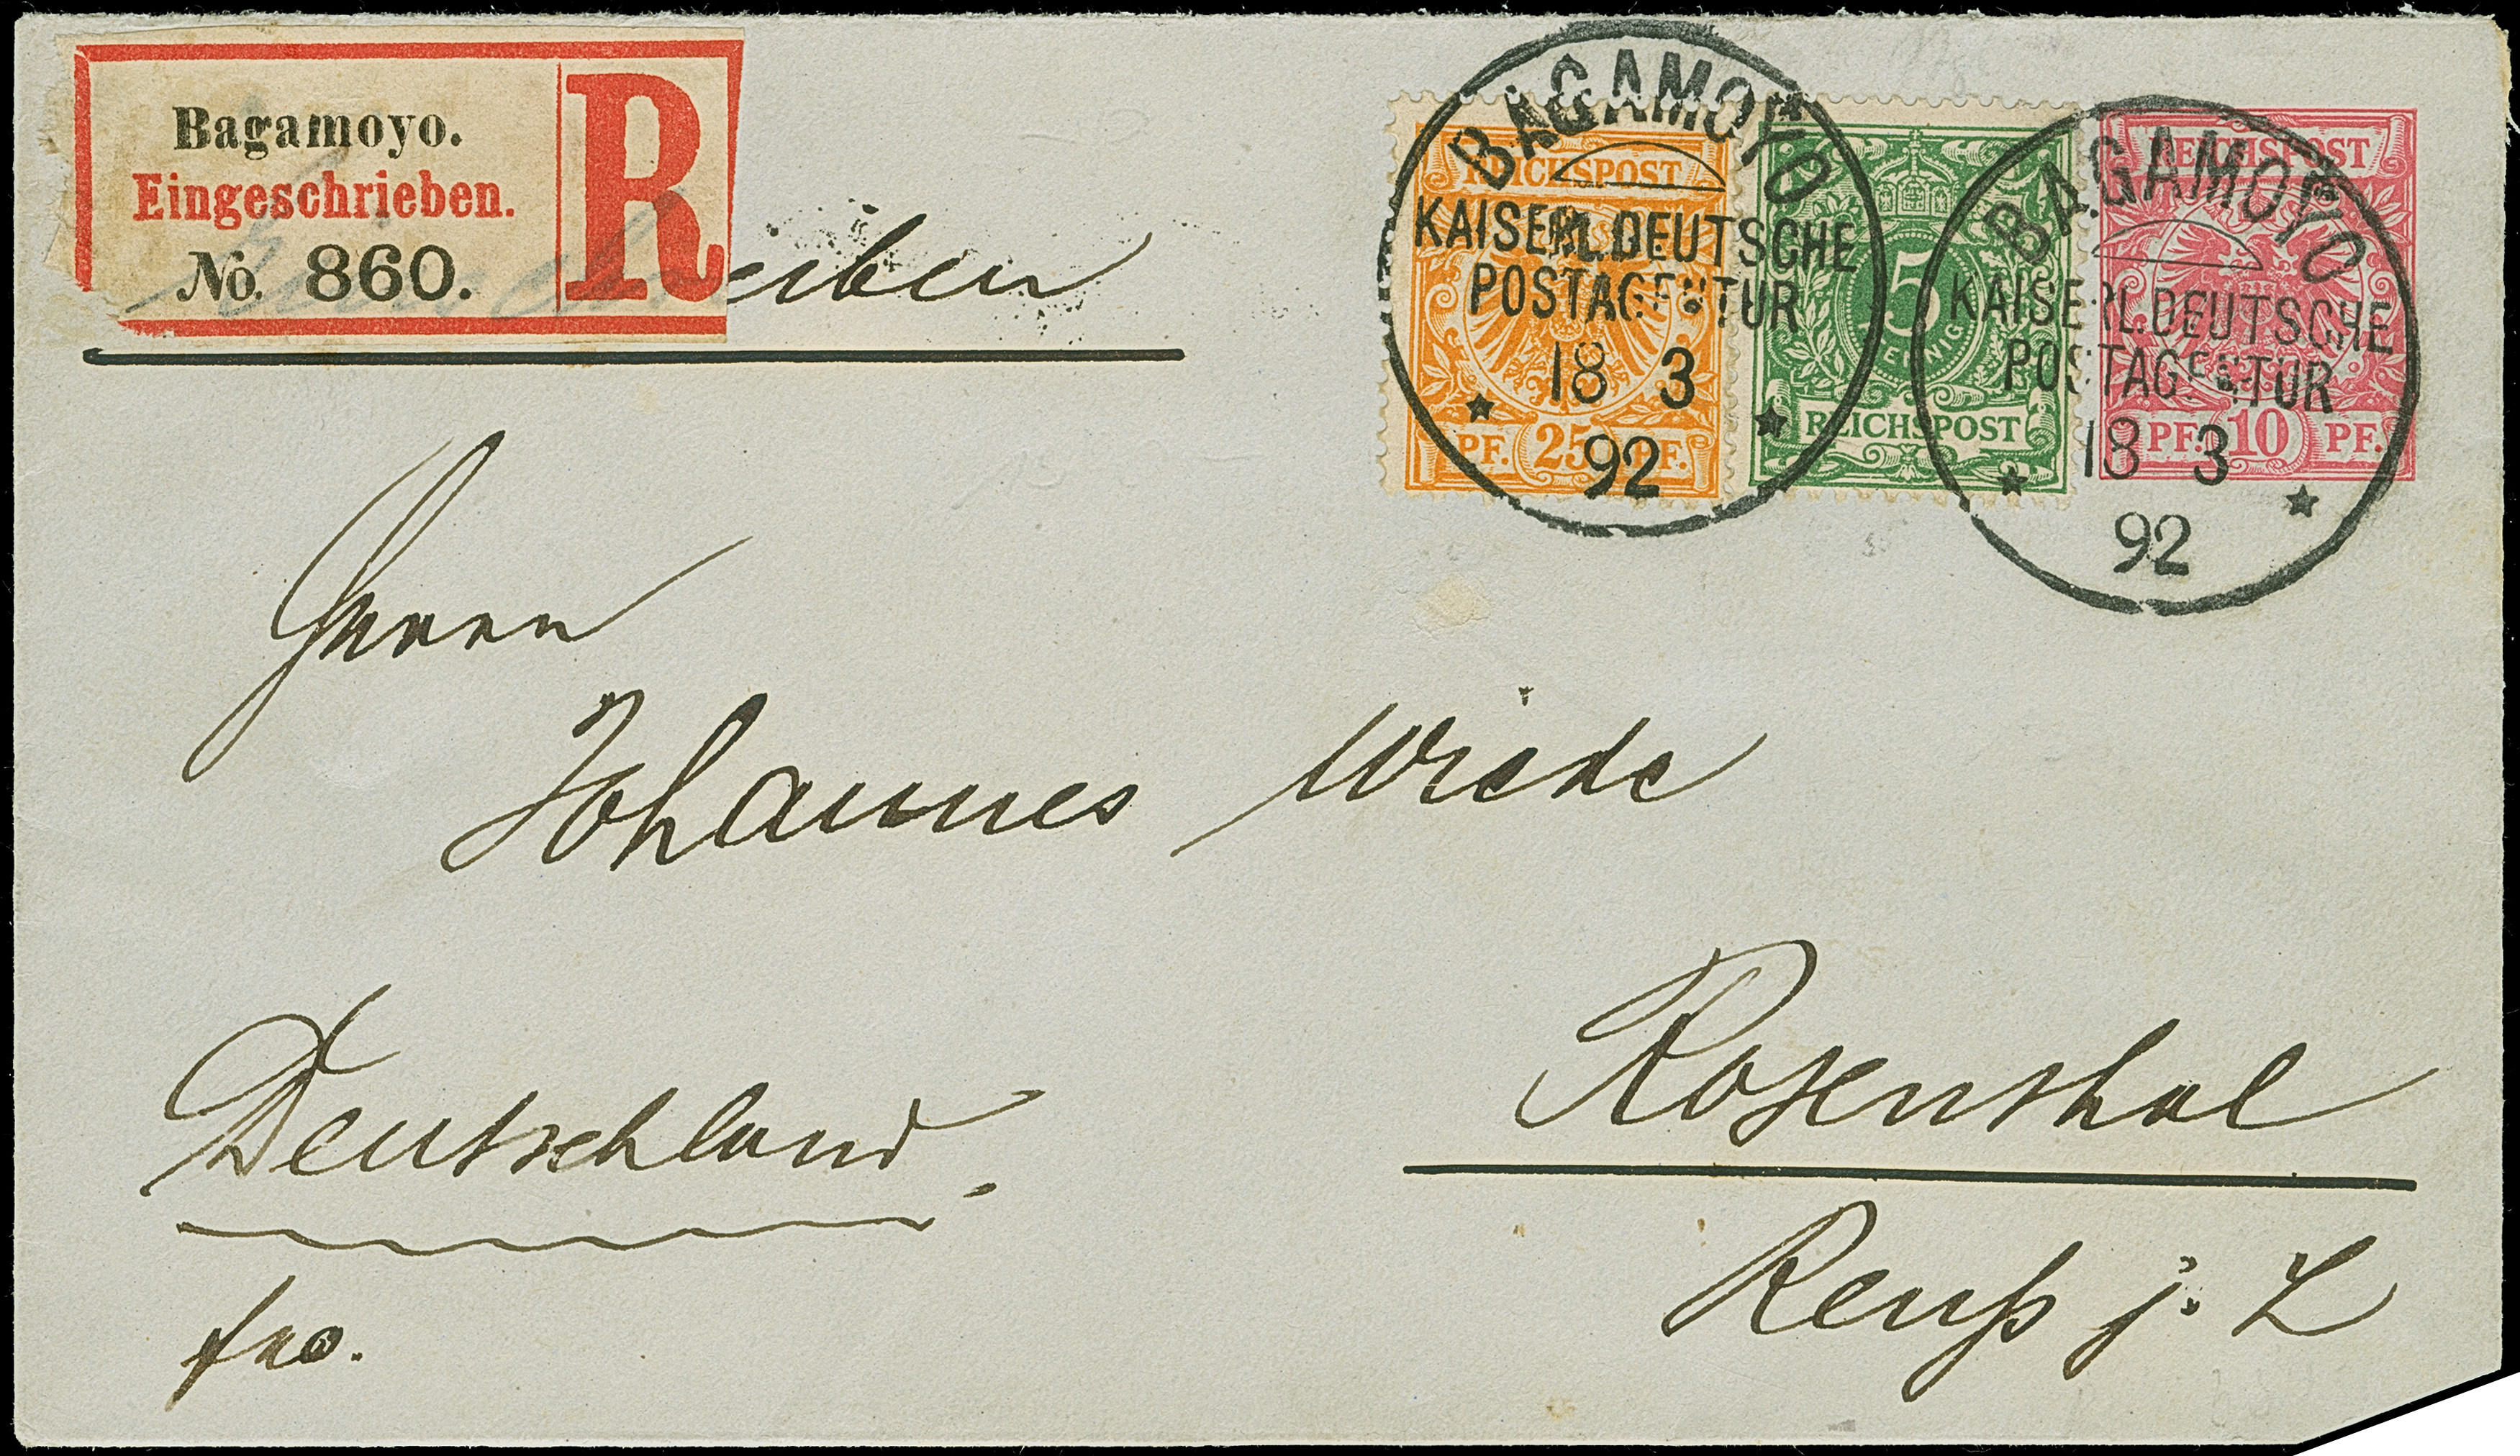 Bagamoyo.
Eingeschrieben.
No. 860.
R
eiben
BAGAMOYO
KAISERL.DEUTSCHE
POSTAGENTUR
18 3
92
REICHSPOST
PF. 25 PF.
5
PFENNIG
REICHSPOST
BAGAMOYO
KAISERL.DEUTSCHE
POSTAGENTUR
18 3
92
REICHSPOST
PF. 10 PF.
Herrn
Johannes Wiede
Rosenthal
Deutschland.
Reuß j. L
fro.